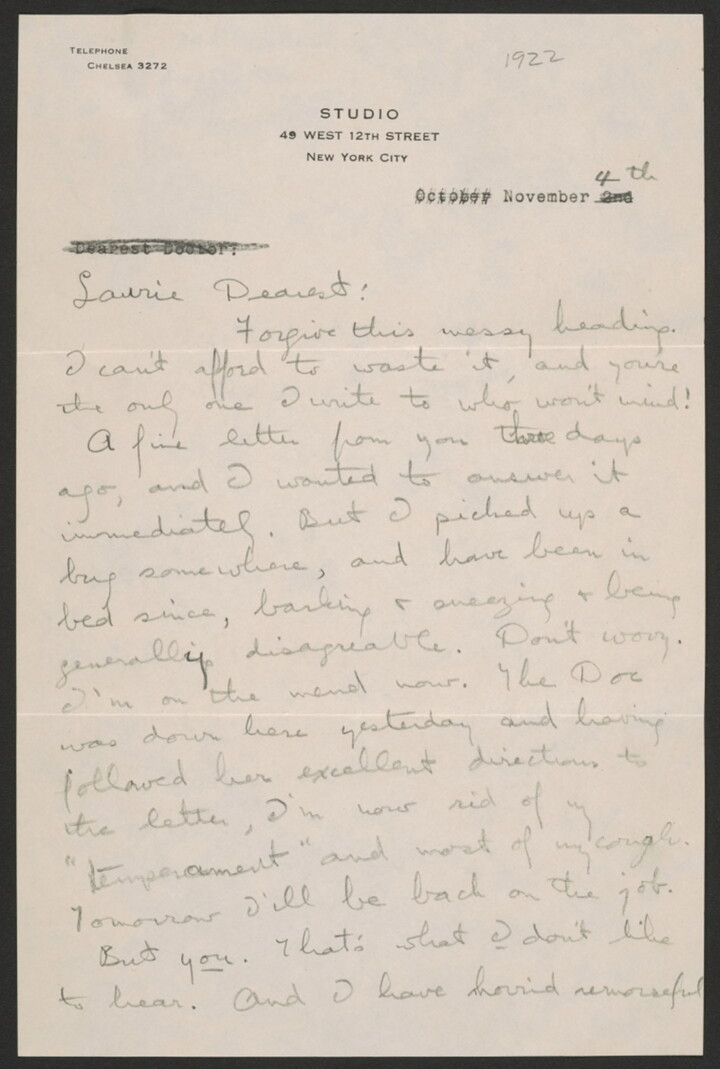 TELEPHONE
CHELSEA 3272
1922
STUDIO
49 WEST 12TH STREET
NEW YORK CITY
4 th
October November 2nd
Dearest Doctor:
Laurie Dearest!
Forgive this messy heading.
I can't afford to waste it, and you're
the only one I write to who won't mind!
A fine letter from you three days
ago, and I wanted to answer it
immediately. But I picked up a
bug somewhere, and have been in
bed since, barking & sneezing & being
generally disagreable. Don't worry.
I'm on the mend now. The Doc
was down here yesterday and having
followed her excellent directions to
the letter, I'm now rid of my
"temperament" and most of my cough.
Tomorrow I'll be back on the job.
But you. That's what I don't like
to hear. And I have horrid remorseful